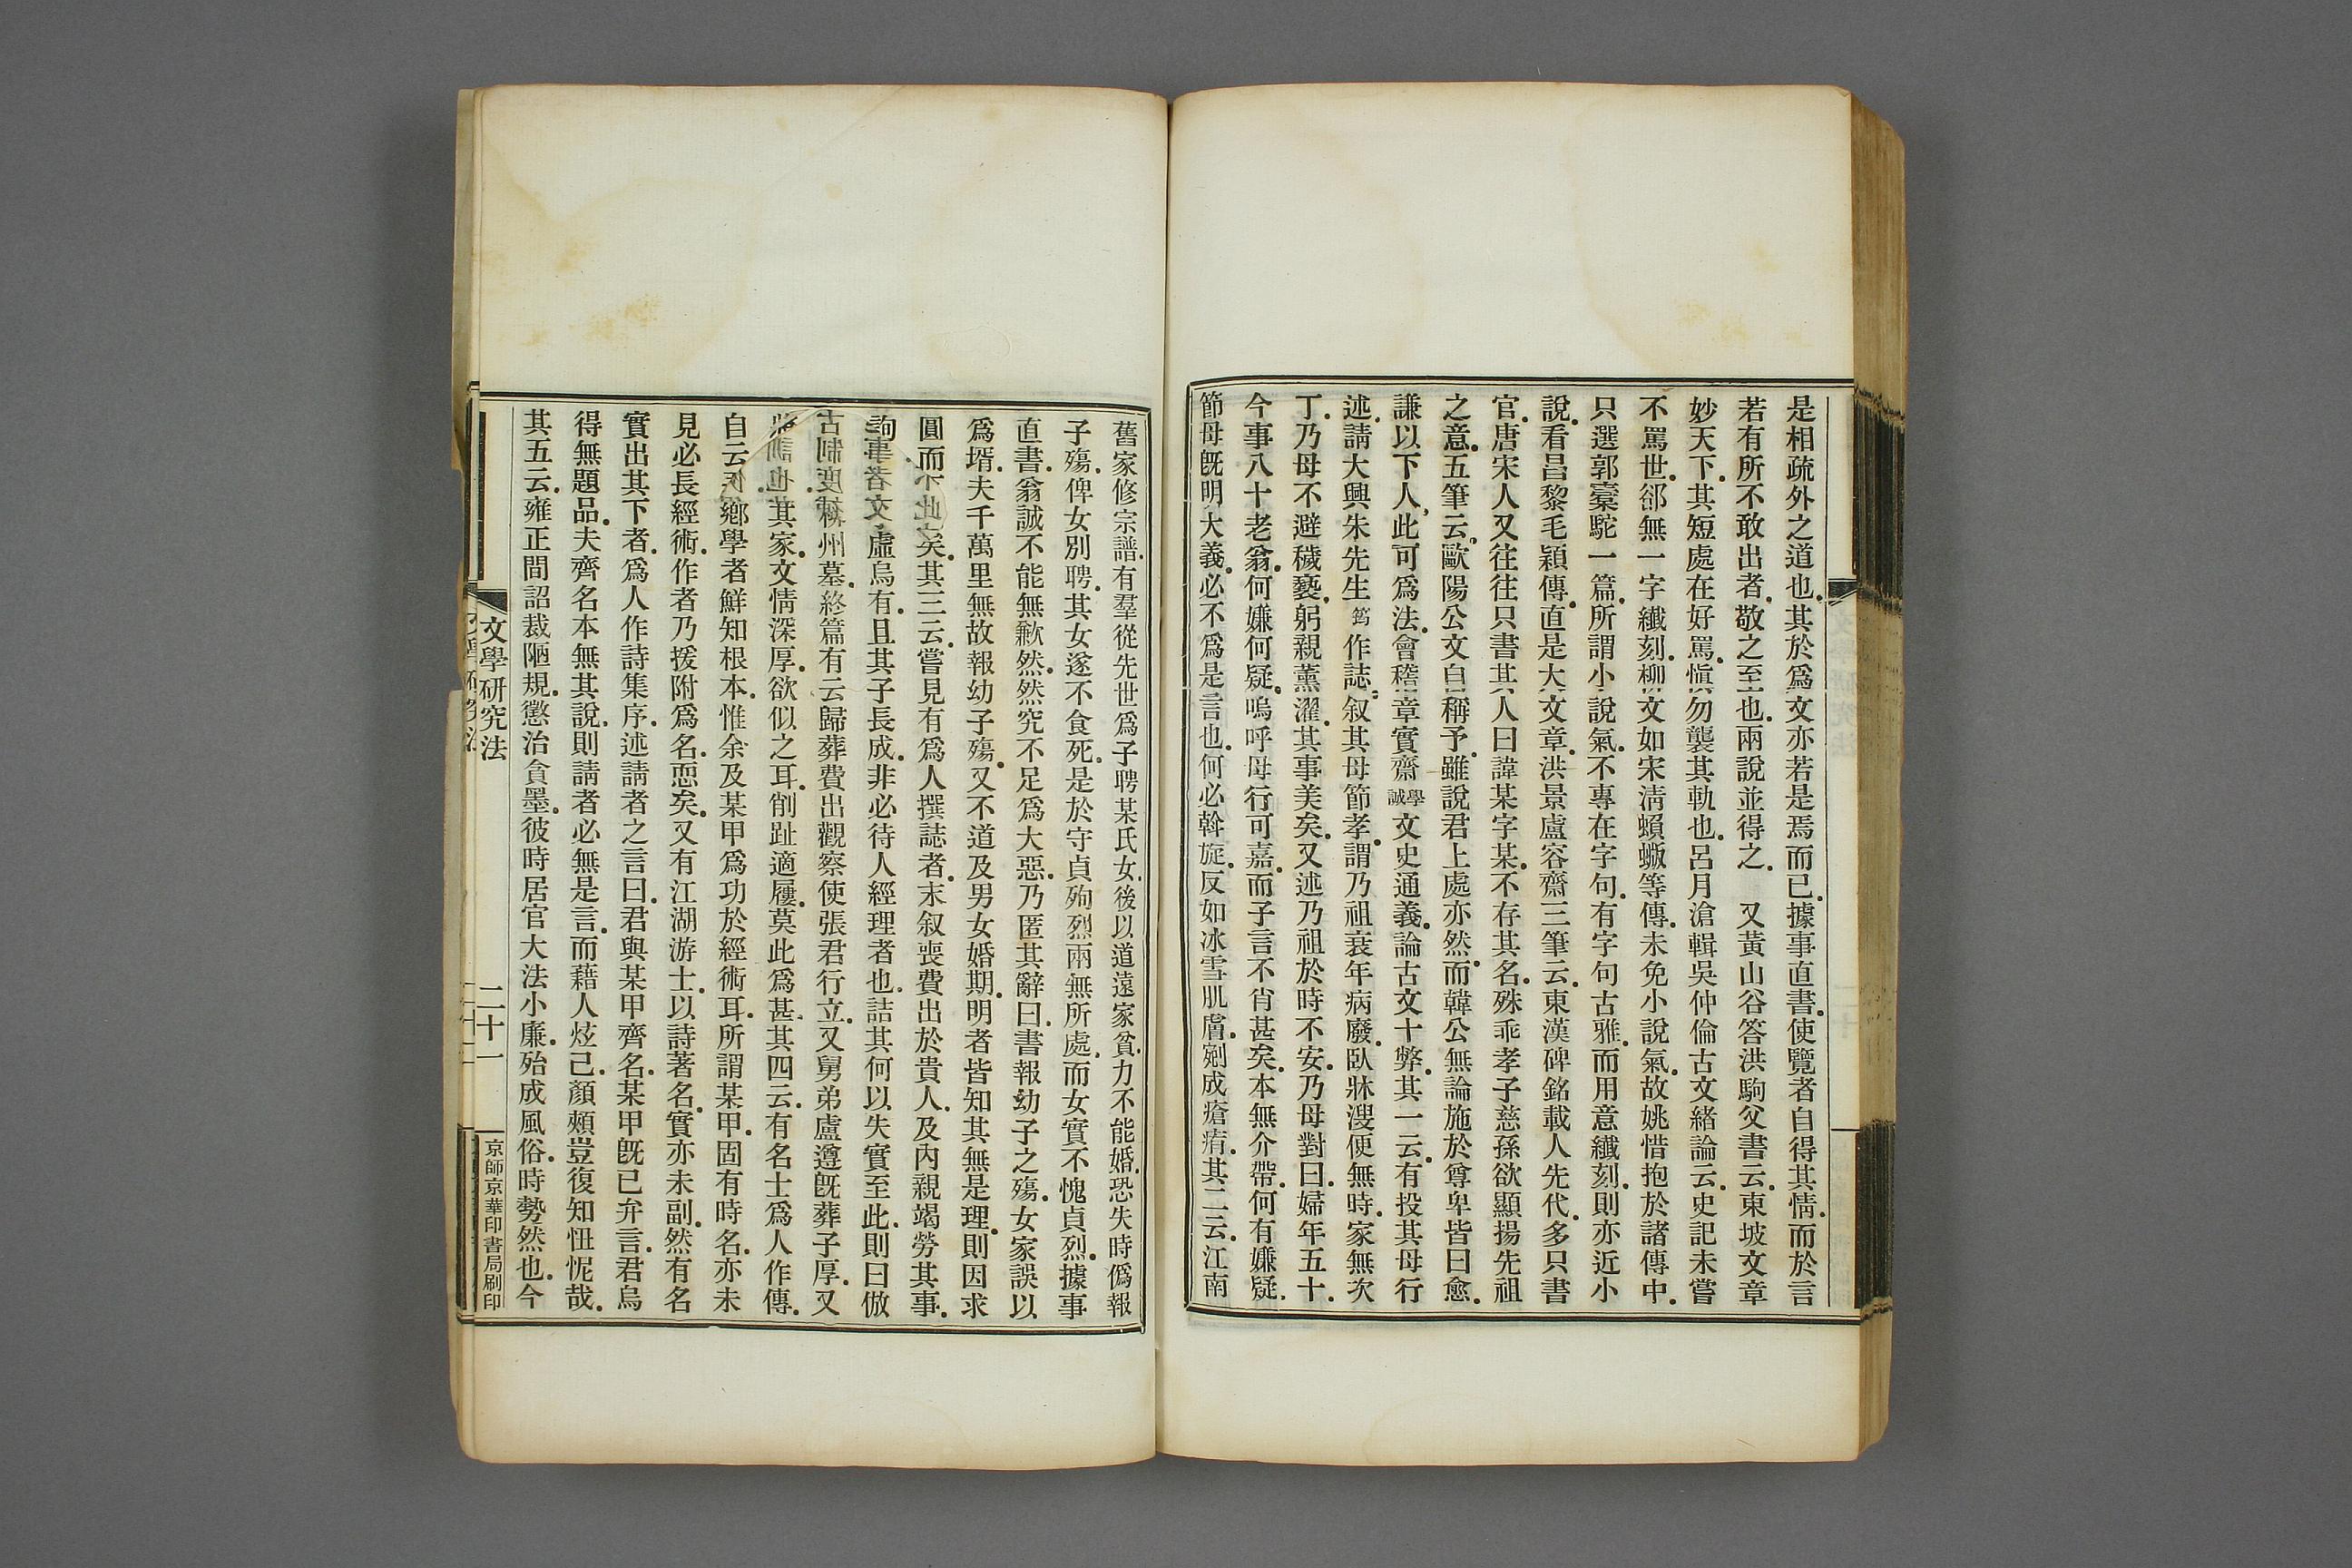 是相疏外之道也其於爲文亦若是焉而已據事直書使覽者自得其情而於言
若有所不敢出者敬之至也兩說並得之　又黃山谷答洪駒父書云東坡文章
妙天下其短處在好罵愼勿襲其軌也呂月滄輯吳仲倫古文緒論云史記未嘗
不罵世卻無一字纖刻柳文如宋淸蝜蝂等傳未免小說氣故姚惜抱於諸傳中
只選郭橐駝一篇所謂小說氣不專在字句有字句古雅而用意纖刻則亦近小
說看昌黎毛穎傳直是大文章洪景盧容齋三筆云東漢碑銘載人先代多只書
官唐宋人又往往只書其人曰諱某字某不存其名殊乖孝子慈孫欲顯揚先祖
之意五筆云歐陽公文自稱予雖說君上處亦然而韓公無論施於尊卑皆曰愈
謙以下人此可爲法會稽章實齋學誠文史通義論古文十弊其一云有投其母行
述請大興朱先生筠作誌叙其母節孝謂乃祖衰年病廢臥牀溲便無時家無次
丁乃母不避穢褻躬親薰濯其事美矣又述乃祖於時不安乃母對曰婦年五十
今事八十老翁何嫌何疑嗚呼母行可嘉而子言不肖甚矣本無介帶何有嫌疑
節母旣明大義必不爲是言也何必斡旋反如冰雪肌膚剜成瘡痏其二云江南
舊家修宗譜有羣從先世爲子聘某氏女後以道遠家貧力不能婚恐失時僞報
子殤俾女別聘其女遂不食死是於守貞殉烈兩無所處而女實不愧貞烈據事
直書翁誠不能無歉然然究不足爲大惡乃匿其辭曰書報幼子之殤女家誤以
爲壻夫千萬里無故報幼子殤又不道及男女婚期明者皆知其無是理則因求
圓而不此矣其三云嘗見有爲人撰誌者末叙喪費出於貴人及內親竭勞其事
詢事者文虛烏有且其子長成非必待人經理者也詰其何以失實至此則曰倣
古制度柳州墓終篇有云歸葬費出觀察使張君行立又舅弟盧遵旣葬子厚又
訓也其家文情深厚欲似之耳削趾適屨莫此爲甚其四云有名士爲人作傳
自云鄉學者鮮知根本惟余及某甲爲功於經術耳所謂某甲固有時名亦未
見必長經術作者乃援附爲名恧矣又有江湖游士以詩著名實亦未副然有名
實出其下者爲人作詩集序述請者之言曰君與某甲齊名某甲旣已弁言君烏
得無題品夫齊名本無其說則請者必無是言而藉人炫己顏頰豈復知忸怩哉
其五云雍正間詔裁陋規懲治貪墨彼時居官大法小廉殆成風俗時勢然也今
文學研究法
二十一
京師京華印書局刷印